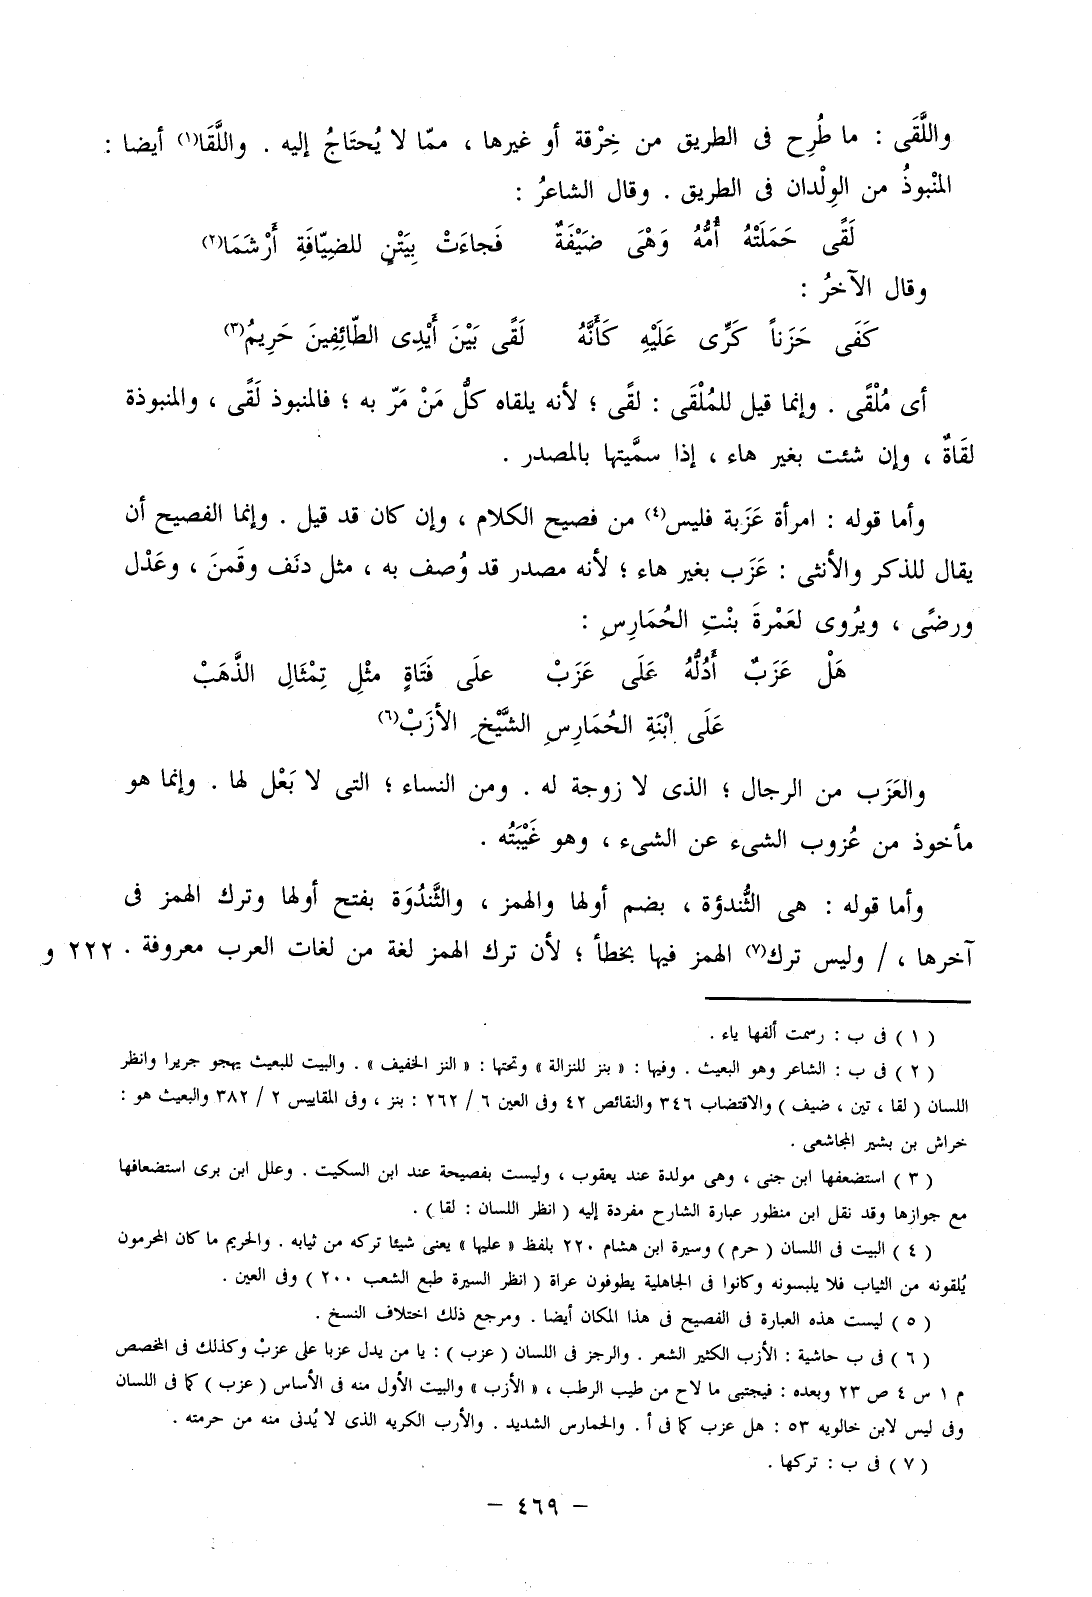 واللَّقَى : ما طُرِح فى الطريق من خِرْقة أو غيرها ، ممّا لا يُحتَاجُ إليه . واللَّقَا(١) أيضا :
المنْبوذُ من الوِلْدان فى الطريق . وقال الشاعرُ :
لَقًى حَمَلَتْهُ أُمُّهُ وَهْىَ ضَيْفَةٌ فَجاءَتْ بِيَتْنٍ للضِيّافَةِ أَرْشَمَا(٢)
وقال الآخرُ :
كَفَى حَزَناً كَرِّى عَلَيْهِ كَأَنَّهُ لَقًى بَيْنَ أَيْدِى الطّائِفِينَ حَرِيمُ(٣)
أى مُلْقًى . وإنما قيل للمُلْقَى : لقًى ؛ لأنه يلقاه كلُّ مَنْ مَرّ به ؛ فالمنبوذ لَقًى ، والمنبوذة
لقَاةٌ ، وإن شئت بغير هاء ، إذا سمَّيتها بالمصدر .
وأما قوله : امرأة عَزَبة فليس(٤) من فصيح الكلام ، وإن كان قد قيل . وإنما الفصيح أن
يقال للذكر والأنثى : عَزَب بغير هاء ؛ لأنه مصدر قد وُصف به ، مثل دنَف وقَمنَ ، وعَدْل
ورضًى ، ويُروى لعَمْرةَ بنْتِ الحُمَارِسِ :
هَلْ عَزَبٌ أَدُلُّهُ عَلَى عَزَبْ علَى فَتَاةٍ مثْلِ تِمْثَالِ الذَّهَبْ
عَلَى ابْنَةِ الحُمَارِسِ الشَّيْخِ الأزَبْ(٦)
والعَزَب من الرجال ؛ الذى لا زوجة له . ومن النساء ؛ التى لا بَعْل لها . وإنما هو
مأخوذ من عُزوب الشىء عن الشىء ، وهو غَيْبَتُه .
وأما قوله : هى الثُّندؤة ، بضم أولها والهمز ، والثَّندُوَة بفتح أولها وترك الهمز فى
آخرها ، / وليس ترك(٧) الهمز فيها بخطأ ؛ لأن ترك الهمز لغة من لغات العرب معروفة . ٢٢٢ و
( ١ ) فى ب : رسمت ألفها ياء .
( ٢ ) فى ب : الشاعر وهو البعيث . وفيها : « بنز للنزالة » وتحتها : « النز الخفيف » . والبيت للبعيث يهجو جريرا وانظر
اللسان ( لقا ، تين ، ضيف ) والاقتضاب ٣٤٦ والنقائص ٤٢ وفى العين ٦ / ٢٦٢ : بنز ، وفى المقاييس ٢ / ٣٨٢ والبعيث هو :
خراش بن بشير المجاشعى .
( ٣ ) استضعفها ابن جنى ، وهى مولدة عند يعقوب ، وليست بفصيحة عند ابن السكيت . وعلل ابن برى استضعافها
مع جوازها وقد نقل ابن منظور عبارة الشارح مفردة إليه ( انظر اللسان : لقا ) .
( ٤ ) البيت فى اللسان ( حرم ) وسيرة ابن هشام ٢٢٠ بلفظ « عليها » يعنى شيئا تركه من ثيابه . والحريم ما كان المحرمون
يُلقونه من الثياب فلا يلبسونه وكانوا فى الجاهلية يطوفون عراة ( انظر السيرة طبع الشعب ٢٠٠ ) وفى العين .
( ٥ ) ليست هذه العبارة فى الفصيح فى هذا المكان أيضا . ومرجع ذلك اختلاف النسخ .
( ٦ ) فى ب حاشية : الأزب الكثير الشعر . والرجز فى اللسان ( عزب ) : يا من يدل عزبا على عزبْ وكذلك فى المخصص
م ١ س ٤ ص ٢٣ وبعده : فيجتبى ما لاح من طيب الرطب ، « الأزب » والبيت الأول منه فى الأساس ( عزب ) كما فى اللسان
وفى ليس لابن خالويه ٥٣ : هل عزب كما فى أ . والحمارس الشديد . والأرب الكريه الذى لا يُدنى منه من حرمته .
( ٧ ) فى ب : تركها .
— ٤٦٩ —